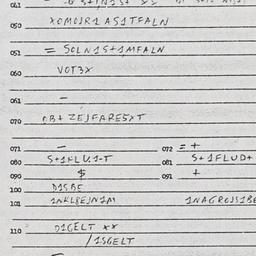 050 XOMOJR1 AS1TFALN
051 = SOLN1S+1MFALN
060 VOT3X
061 –
070 OB+ ZEJFARE5XT
071 – 072 = +
080 S+1KLU.1-T 081 S+1FLUD+
090 $ 091 +
100 D1SBE
101 1NKLBEJN1M 1NAGROJS1BE
110 D1GELT XX
/1SGELT